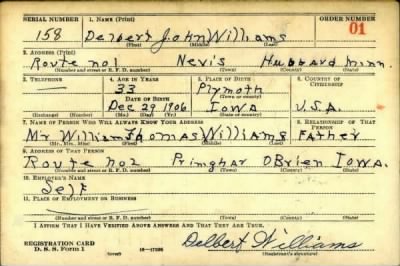 SERIAL NUMBER 1. NAME (Print) ORDER NUMBER
158 Delbert John Williams 01
(First) (Middle) (Last)
2. ADDRESS (Print)
Route no1 Nevis Hubbard Minn.
(Number and street or R. F. D. number) (Town) (County) (State)
3. TELEPHONE 4. AGE IN YEARS 5. PLACE OF BIRTH 6. COUNTRY OF CITIZENSHIP
33 Plymoth
DATE OF BIRTH (Town or county)
Dec 29 1906 Iowa U.S.A.
(Exchange) (Number) (Mo.) (Day) (Yr.) (State or country)
7. NAME OF PERSON WHO WILL ALWAYS KNOW YOUR ADDRESS 8. RELATIONSHIP OF THAT PERSON
Mr William Thomas Williams Father
(Mr., Mrs., Miss) (First) (Middle) (Last)
9. ADDRESS OF THAT PERSON
Route no2 Primghar OBrien Iowa.
(Number and street or R. F. D. number) (Town) (County) (State)
10. EMPLOYER'S NAME
Self
11. PLACE OF EMPLOYMENT OR BUSINESS
(Number and street or R. F. D. number) (Town) (County) (State)
I AFFIRM THAT I HAVE VERIFIED ABOVE ANSWERS AND THAT THEY ARE TRUE.
REGISTRATION CARD Delbert Williams
D. S. S. Form 1 (Registrant's signature)